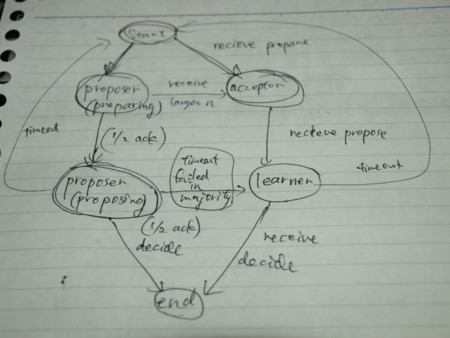 Start
recieve propane
proposer
(preparing)
receive
larger n
acceptor
timeout
(1/2 ack)
recteve propose
proposer
(proposing)
timeout
failed
in
majority
learner
timeout
(1/2 ack)
decide
receive
decide
end